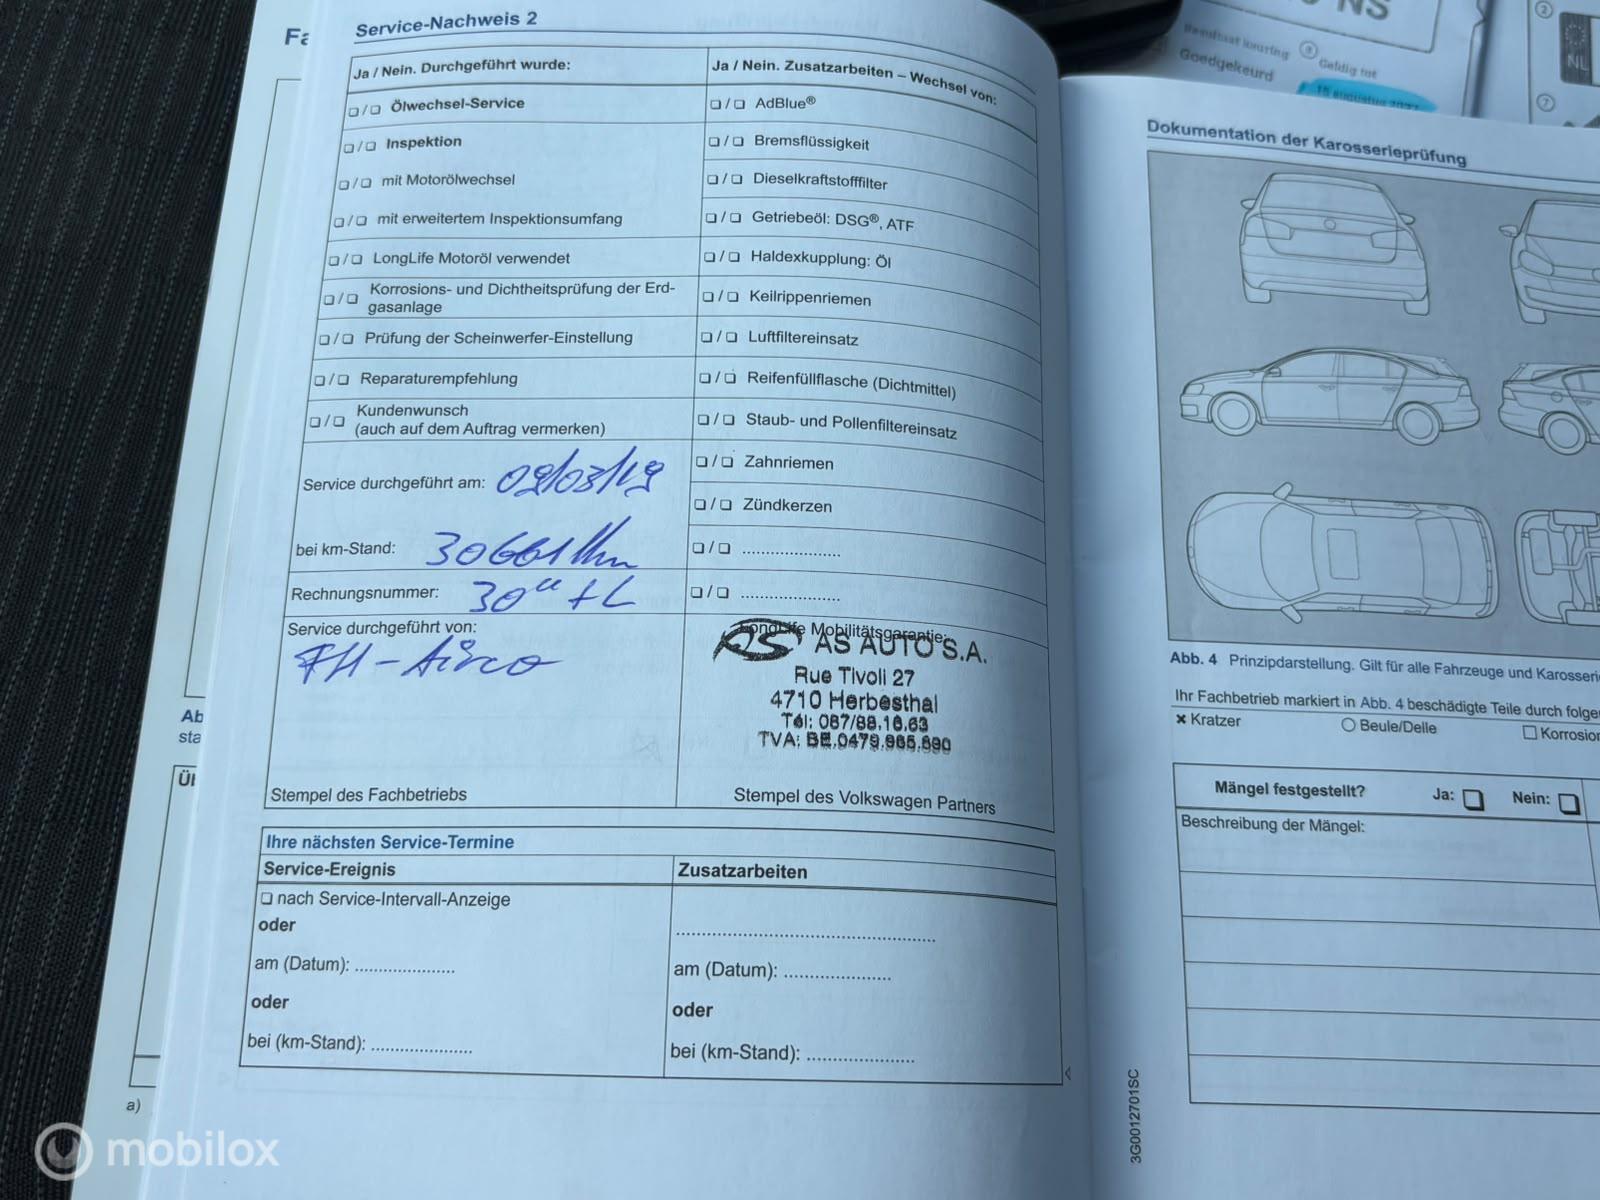 Service-Nachweis 2
Ja / Nein. Durchgeführt wurde:
❏ / ❏ Ölwechsel-Service
❏ / ❏ Inspektion
❏ / ❏ mit Motorölwechsel
❏ / ❏ mit erweitertem Inspektionsumfang
❏ / ❏ LongLife Motoröl verwendet
❏ / ❏ Korrosions- und Dichtheitsprüfung der Erd-
gasanlage
❏ / ❏ Prüfung der Scheinwerfer-Einstellung
❏ / ❏ Reparaturempfehlung
❏ / ❏ Kundenwunsch
(auch auf dem Auftrag vermerken)
Service durchgeführt am: 09/03/19
bei km-Stand: 30661 Km
Rechnungsnummer:
Service durchgeführt von:
Stempel des Fachbetriebs
Ja / Nein. Zusatzarbeiten – Wechsel von:
❏ / ❏ AdBlue®
❏ / ❏ Bremsflüssigkeit
❏ / ❏ Dieselkraftstofffilter
❏ / ❏ Getriebeöl: DSG®, ATF
❏ / ❏ Haldexkupplung: Öl
❏ / ❏ Keilrippenriemen
❏ / ❏ Luftfiltereinsatz
❏ / ❏ Reifenfüllflasche (Dichtmittel)
❏ / ❏ Staub- und Pollenfiltereinsatz
❏ / ❏ Zahnriemen
❏ / ❏ Zündkerzen
❏ / ❏ .....................
❏ / ❏ .....................
LongLife Mobilitätsgarantie:
AS AS AUTO S.A.
Rue Tivoli 27
4710 Herbesthal
Tél: 087/88.16.63
TVA: BE.0479.965.690
Stempel des Volkswagen Partners
Ihre nächsten Service-Termine
Service-Ereignis
❏ nach Service-Intervall-Anzeige
oder
am (Datum): .....................
oder
bei (km-Stand): .....................
Zusatzarbeiten
.....................
am (Datum): .....................
oder
bei (km-Stand): .....................
Goedgekeurd
Geldig tot
NL
Dokumentation der Karosserieprüfung
Abb. 4 Prinzipdarstellung. Gilt für alle Fahrzeuge und Karosseri
Ihr Fachbetrieb markiert in Abb. 4 beschädigte Teile durch folge
✕ Kratzer
○ Beule/Delle
☐ Korrosion
Mängel festgestellt? Ja: ❏ Nein: ❏
Beschreibung der Mängel:
3G0012701SC
Ab
sta
a)
mobilox